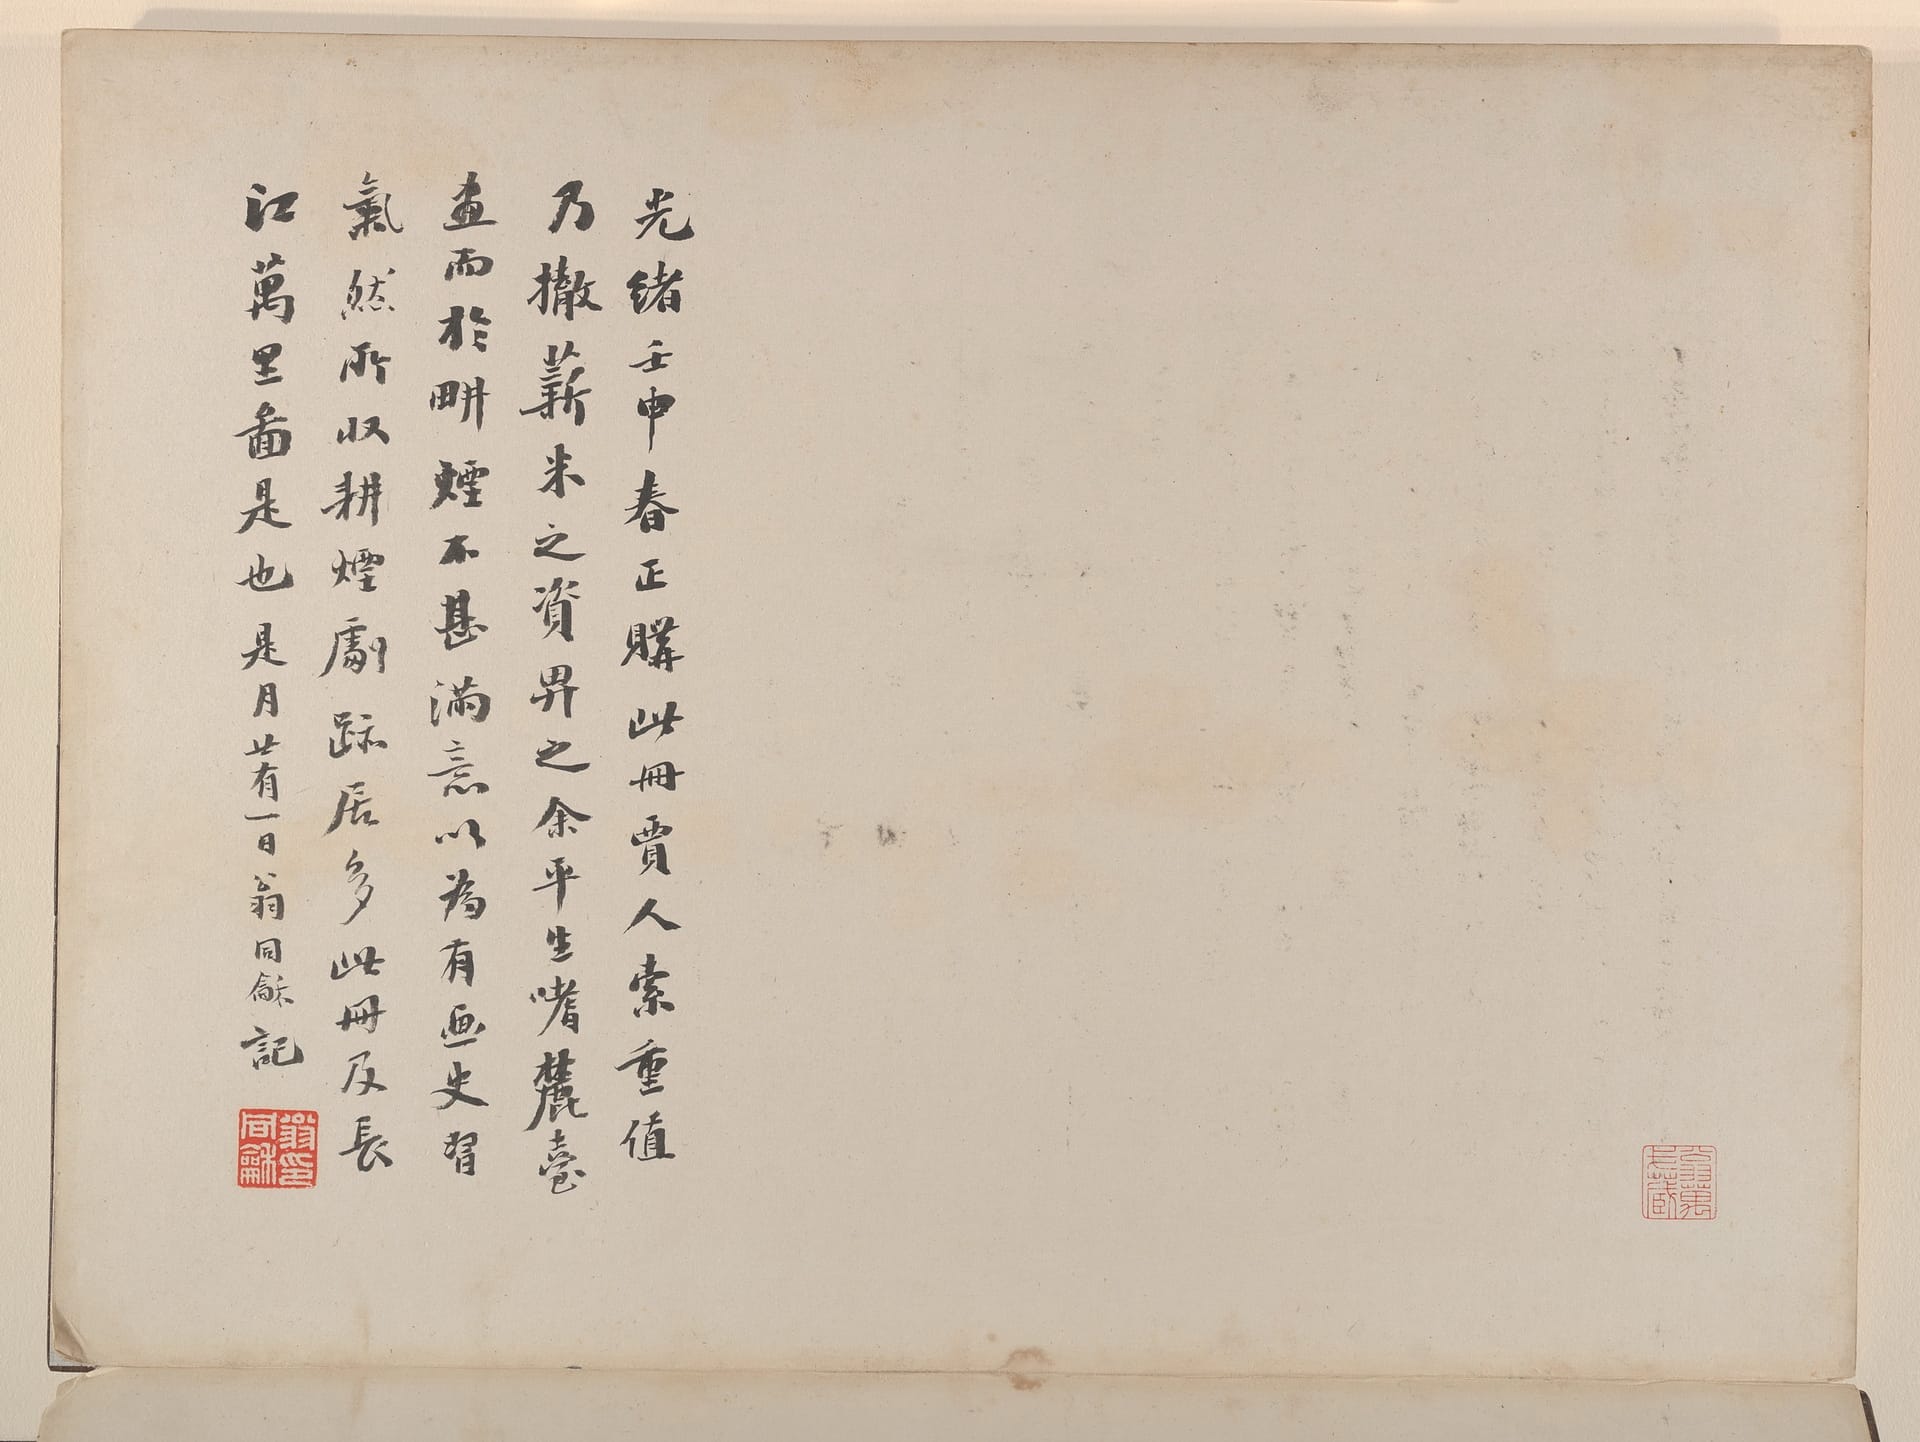 光緒壬申春正購此冊賈人索重值
乃撤薪米之資畀之余平生嗜麓臺
畫而於畊煙不甚滿意以為有画史習
氣然所收耕煙劇跡居多此冊及長
江萬里啚是也是月廿有一日翁同龢記
翁印同龢
翁萬戈藏